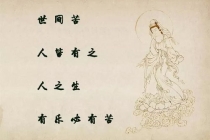 世间苦
人皆有之
人之生
有乐哇有苦